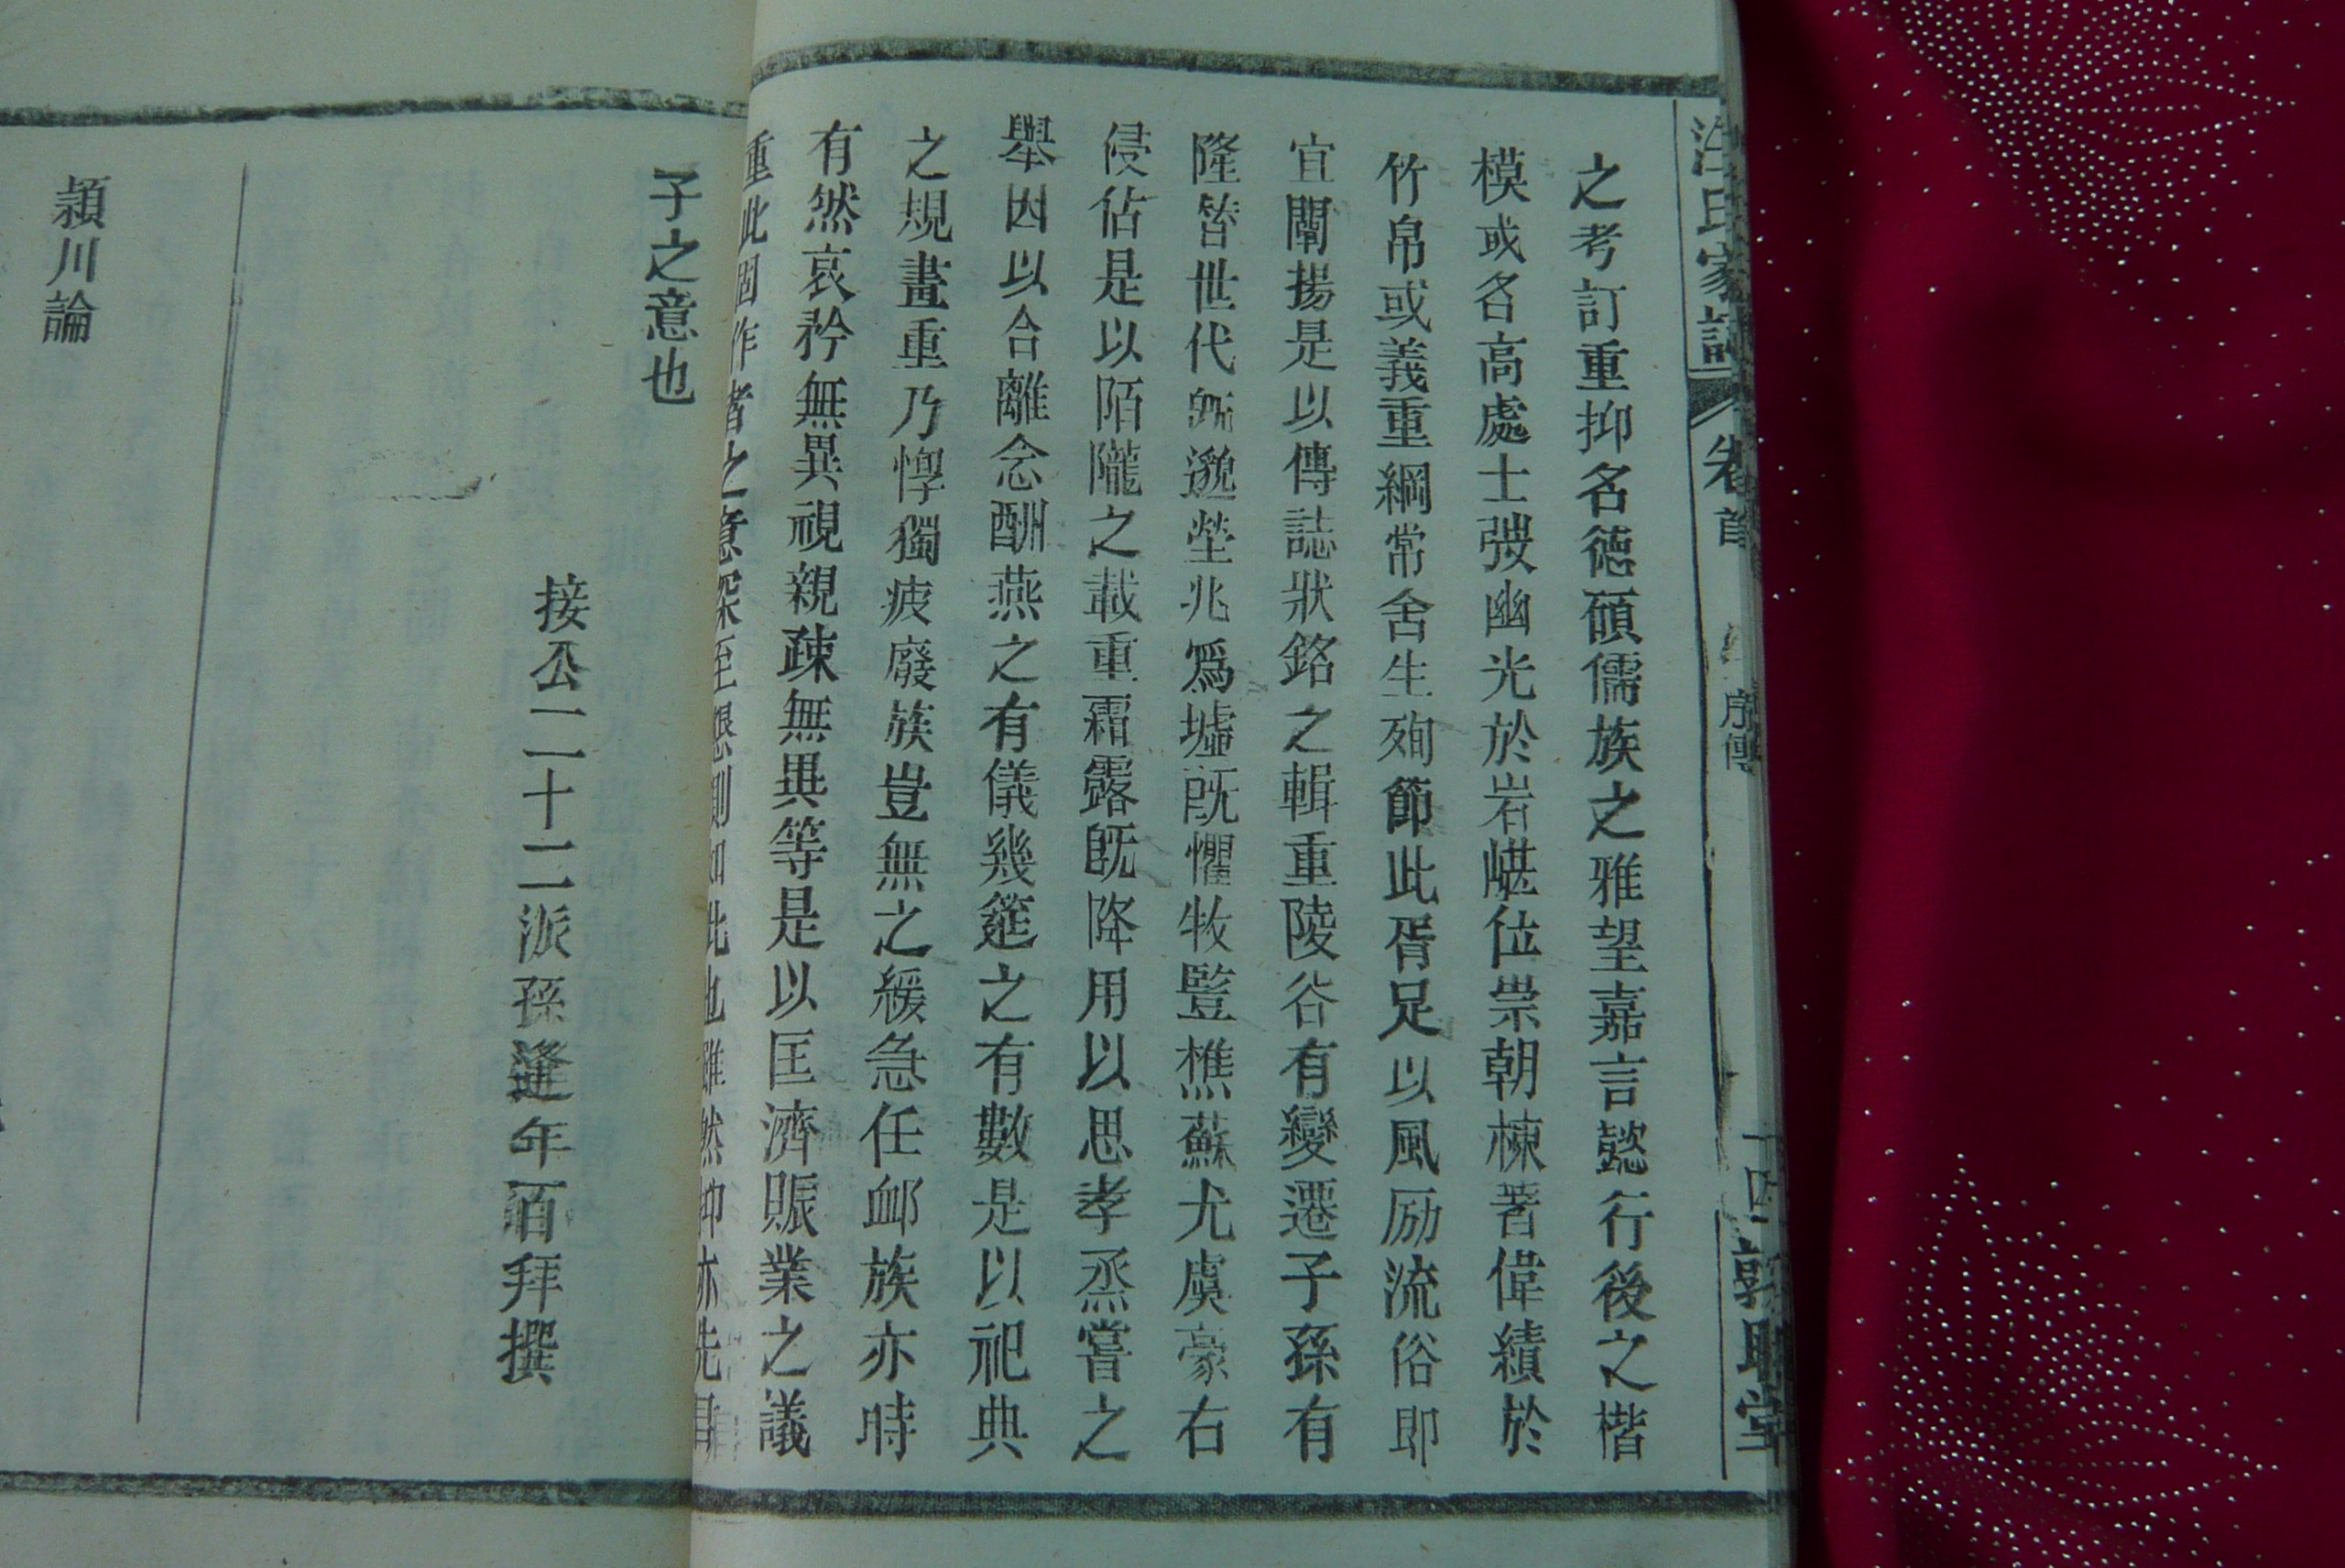 之考訂重抑名德碩儒族之雅望嘉言懿行後之楷
模或名高處士發幽光於岩㟏位崇朝棟著偉績於
竹帛或義重綱常舍生殉節此胥足以風励流俗即
宜闡揚是以傳誌狀銘之輯重陵谷有變遷子孫有
隆替世代旣邈塋兆爲墟旣懼牧豎樵蘇尤虞豪右
侵佔是以陌隴之載重霜露旣降用以思孝烝嘗之
舉因以合離念酬燕之有儀幾筵之有數是以祀典
之規畫重乃惸獨疲癈蔟豈無之緩急任卹族亦時
有然哀矜無異視親疎無異等是以匡濟賑業之議
重此固作者之意深至懇惻如此也雖然抑亦先君
子之意也
接公二十二派孫逢年百拜撰
潁川論
卷首
序傳